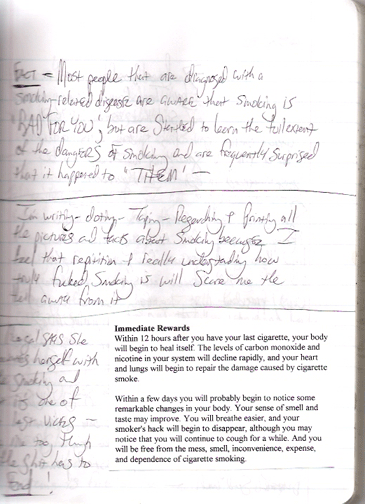 FACT - Most people that are diagnosed with a
smoking-related disease are aware that smoking is
"BAD FOR YOU", but are startled to learn the full extent
of the dangers of smoking and are frequently surprised
that it happened to "THEM" —
I'm writing - doting - Taping - Regarding & printing all
the pictures and facts about smoking because I
feel that repitition & really understanding how
fucked smoking is will scare me the
away from it
she
herself with
smoking and
she of
-
the shit has to
end!
Immediate Rewards
Within 12 hours after you have your last cigarette, your body
will begin to heal itself. The levels of carbon monoxide and
nicotine in your system will decline rapidly, and your heart
and lungs will begin to repair the damage caused by cigarette
smoke.
Within a few days you will probably begin to notice some
remarkable changes in your body. Your sense of smell and
taste may improve. You will breathe easier, and your
smoker's hack will begin to disappear, although you may
notice that you will continue to cough for a while. And you
will be free from the mess, smell, inconvenience, expense,
and dependence of cigarette smoking.